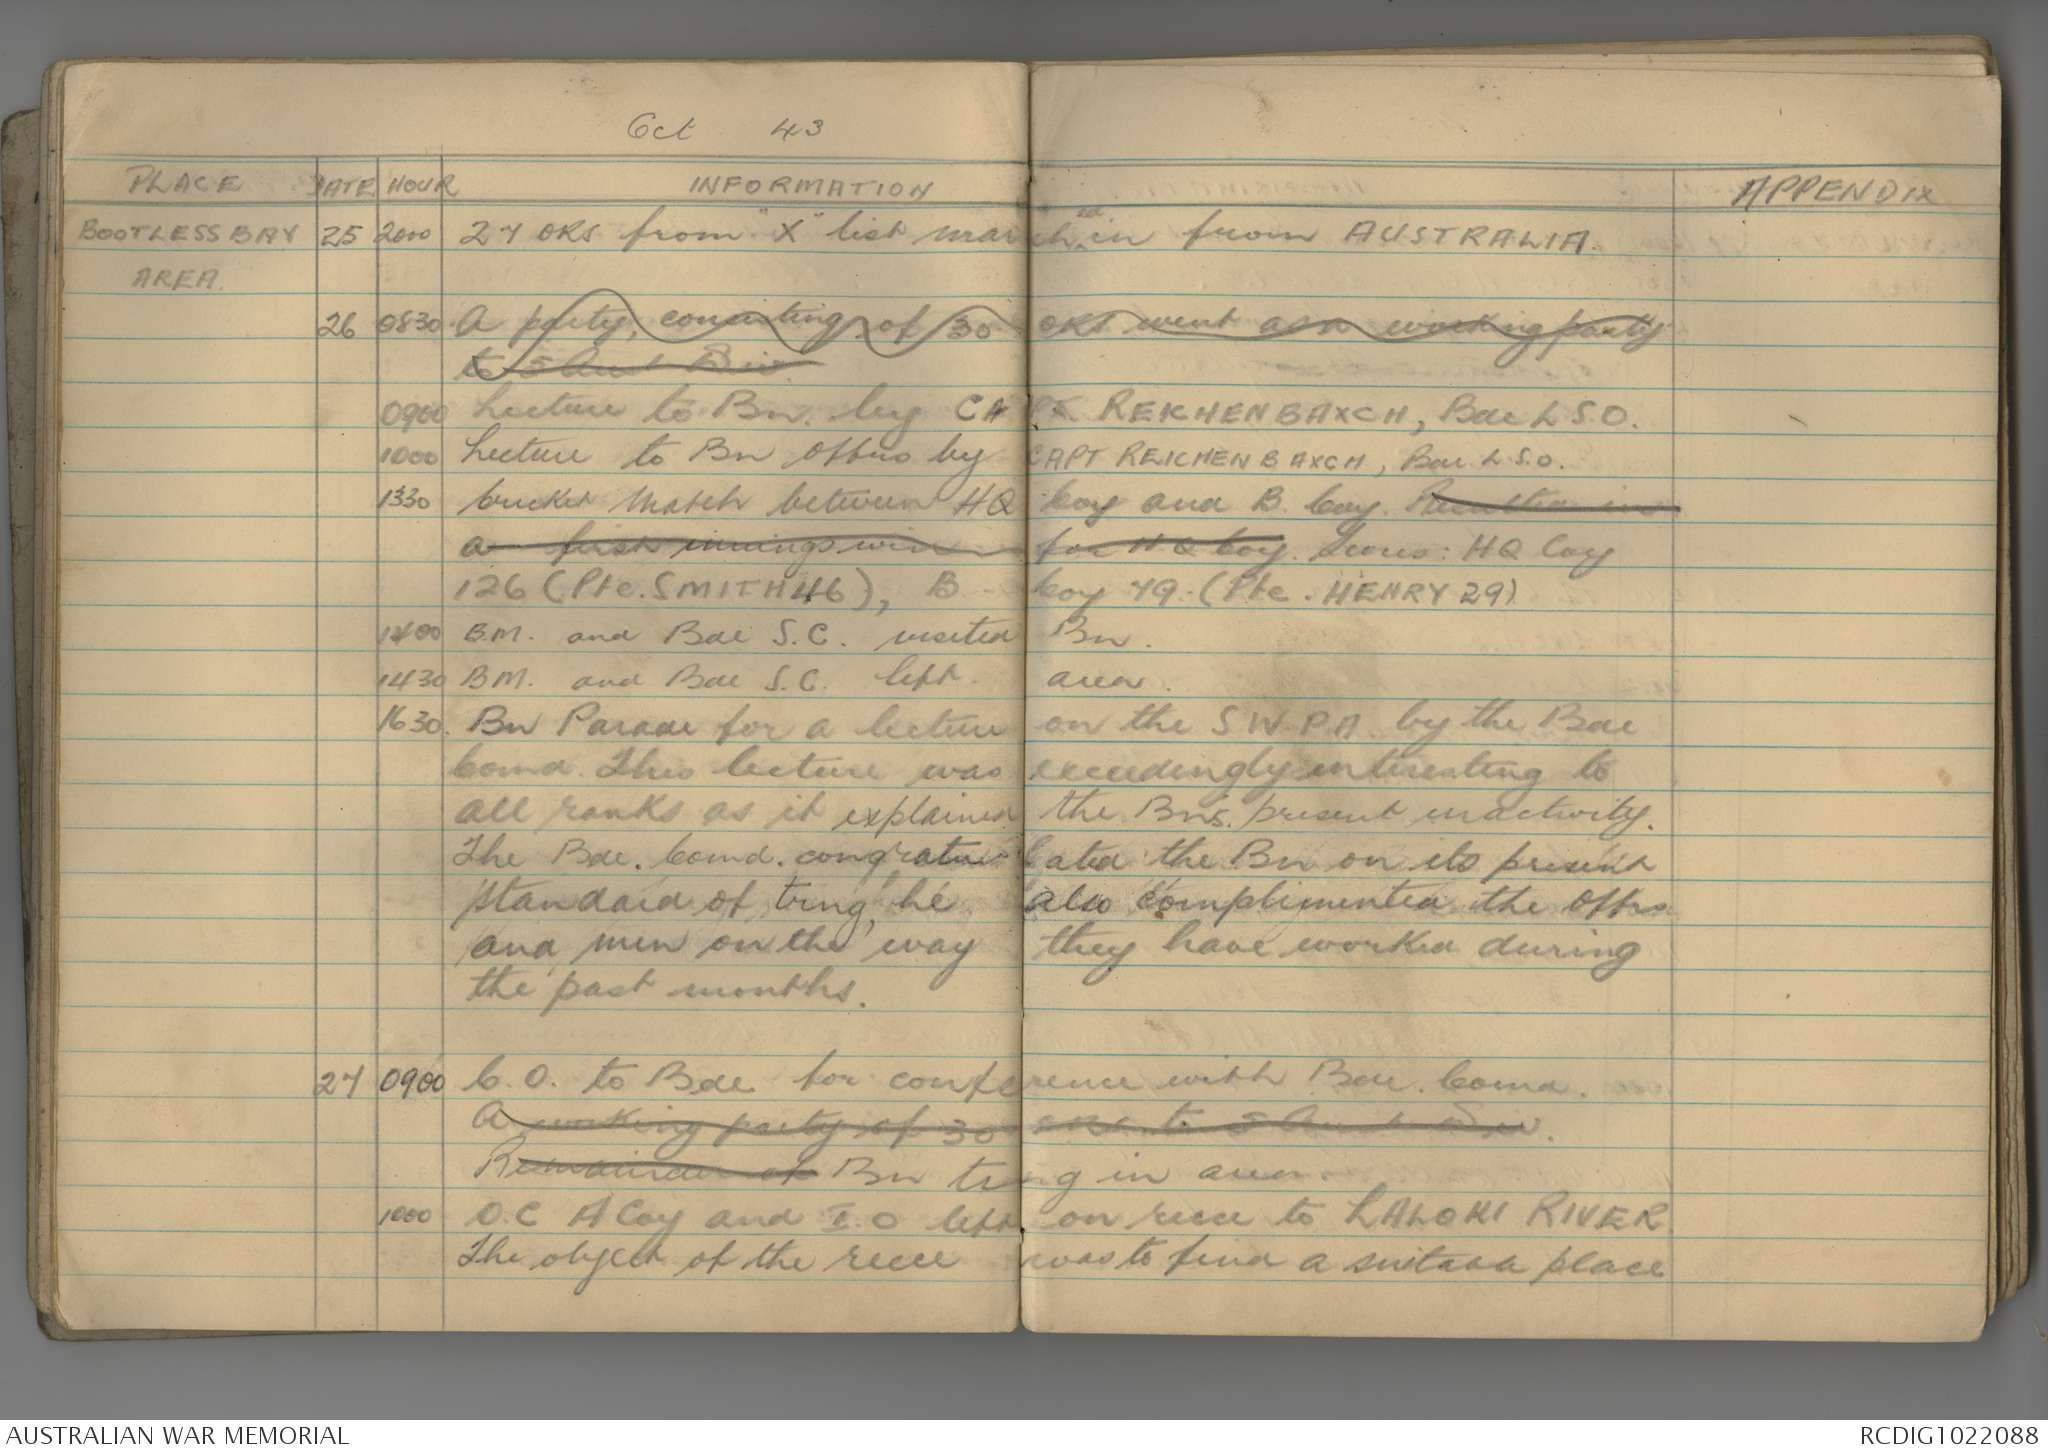 Oct 43
PLACE DATE HOUR INFORMATION APPENDIX
BOOTLESS BAY 25 2000 27 ORs from "X" list marched in from AUSTRALIA.
AREA.
26 0830 A party, consisting of 30 ORs went as a working party
to 5 Aust Div
0900 Lecture to Bn. by CAPT. REICHENBAXCH, Bde L.S.O.
1000 Lecture to Bn Offrs by CAPT REICHENBAXCH, Bde L.S.O.
1330 Cricket Match between HQ Coy and B. Coy. Resulted in
a first innings win for HQ Coy. Scores: HQ Coy
126 (Pte. SMITH 46), B Coy 79. (Pte. HENRY 29)
1400 B.M. and Bde S.C. visited Bn.
1430 B.M. and Bde S.C. left area.
1630. Bn Parade for a lecture on the S.W.P.A. by the Bde
Comd. This lecture was exceedingly interesting to
all ranks as it explained the Bns. present inactivity.
The Bde. Comd. congratulated the Bn on its present
standard of trng, he also complimented the Offrs
and men on the way they have worked during
the past months.
27 0900 C.O. to Bde for conference with Bde. Comd.
A working party of 30 ORs to 5 Aust Div.
Remainder of Bn trng in area.
1000 O.C A Coy and I.O left on recce to LALOKI RIVER.
The object of the recce was to find a place
AUSTRALIAN WAR MEMORIAL RCDIG1022088